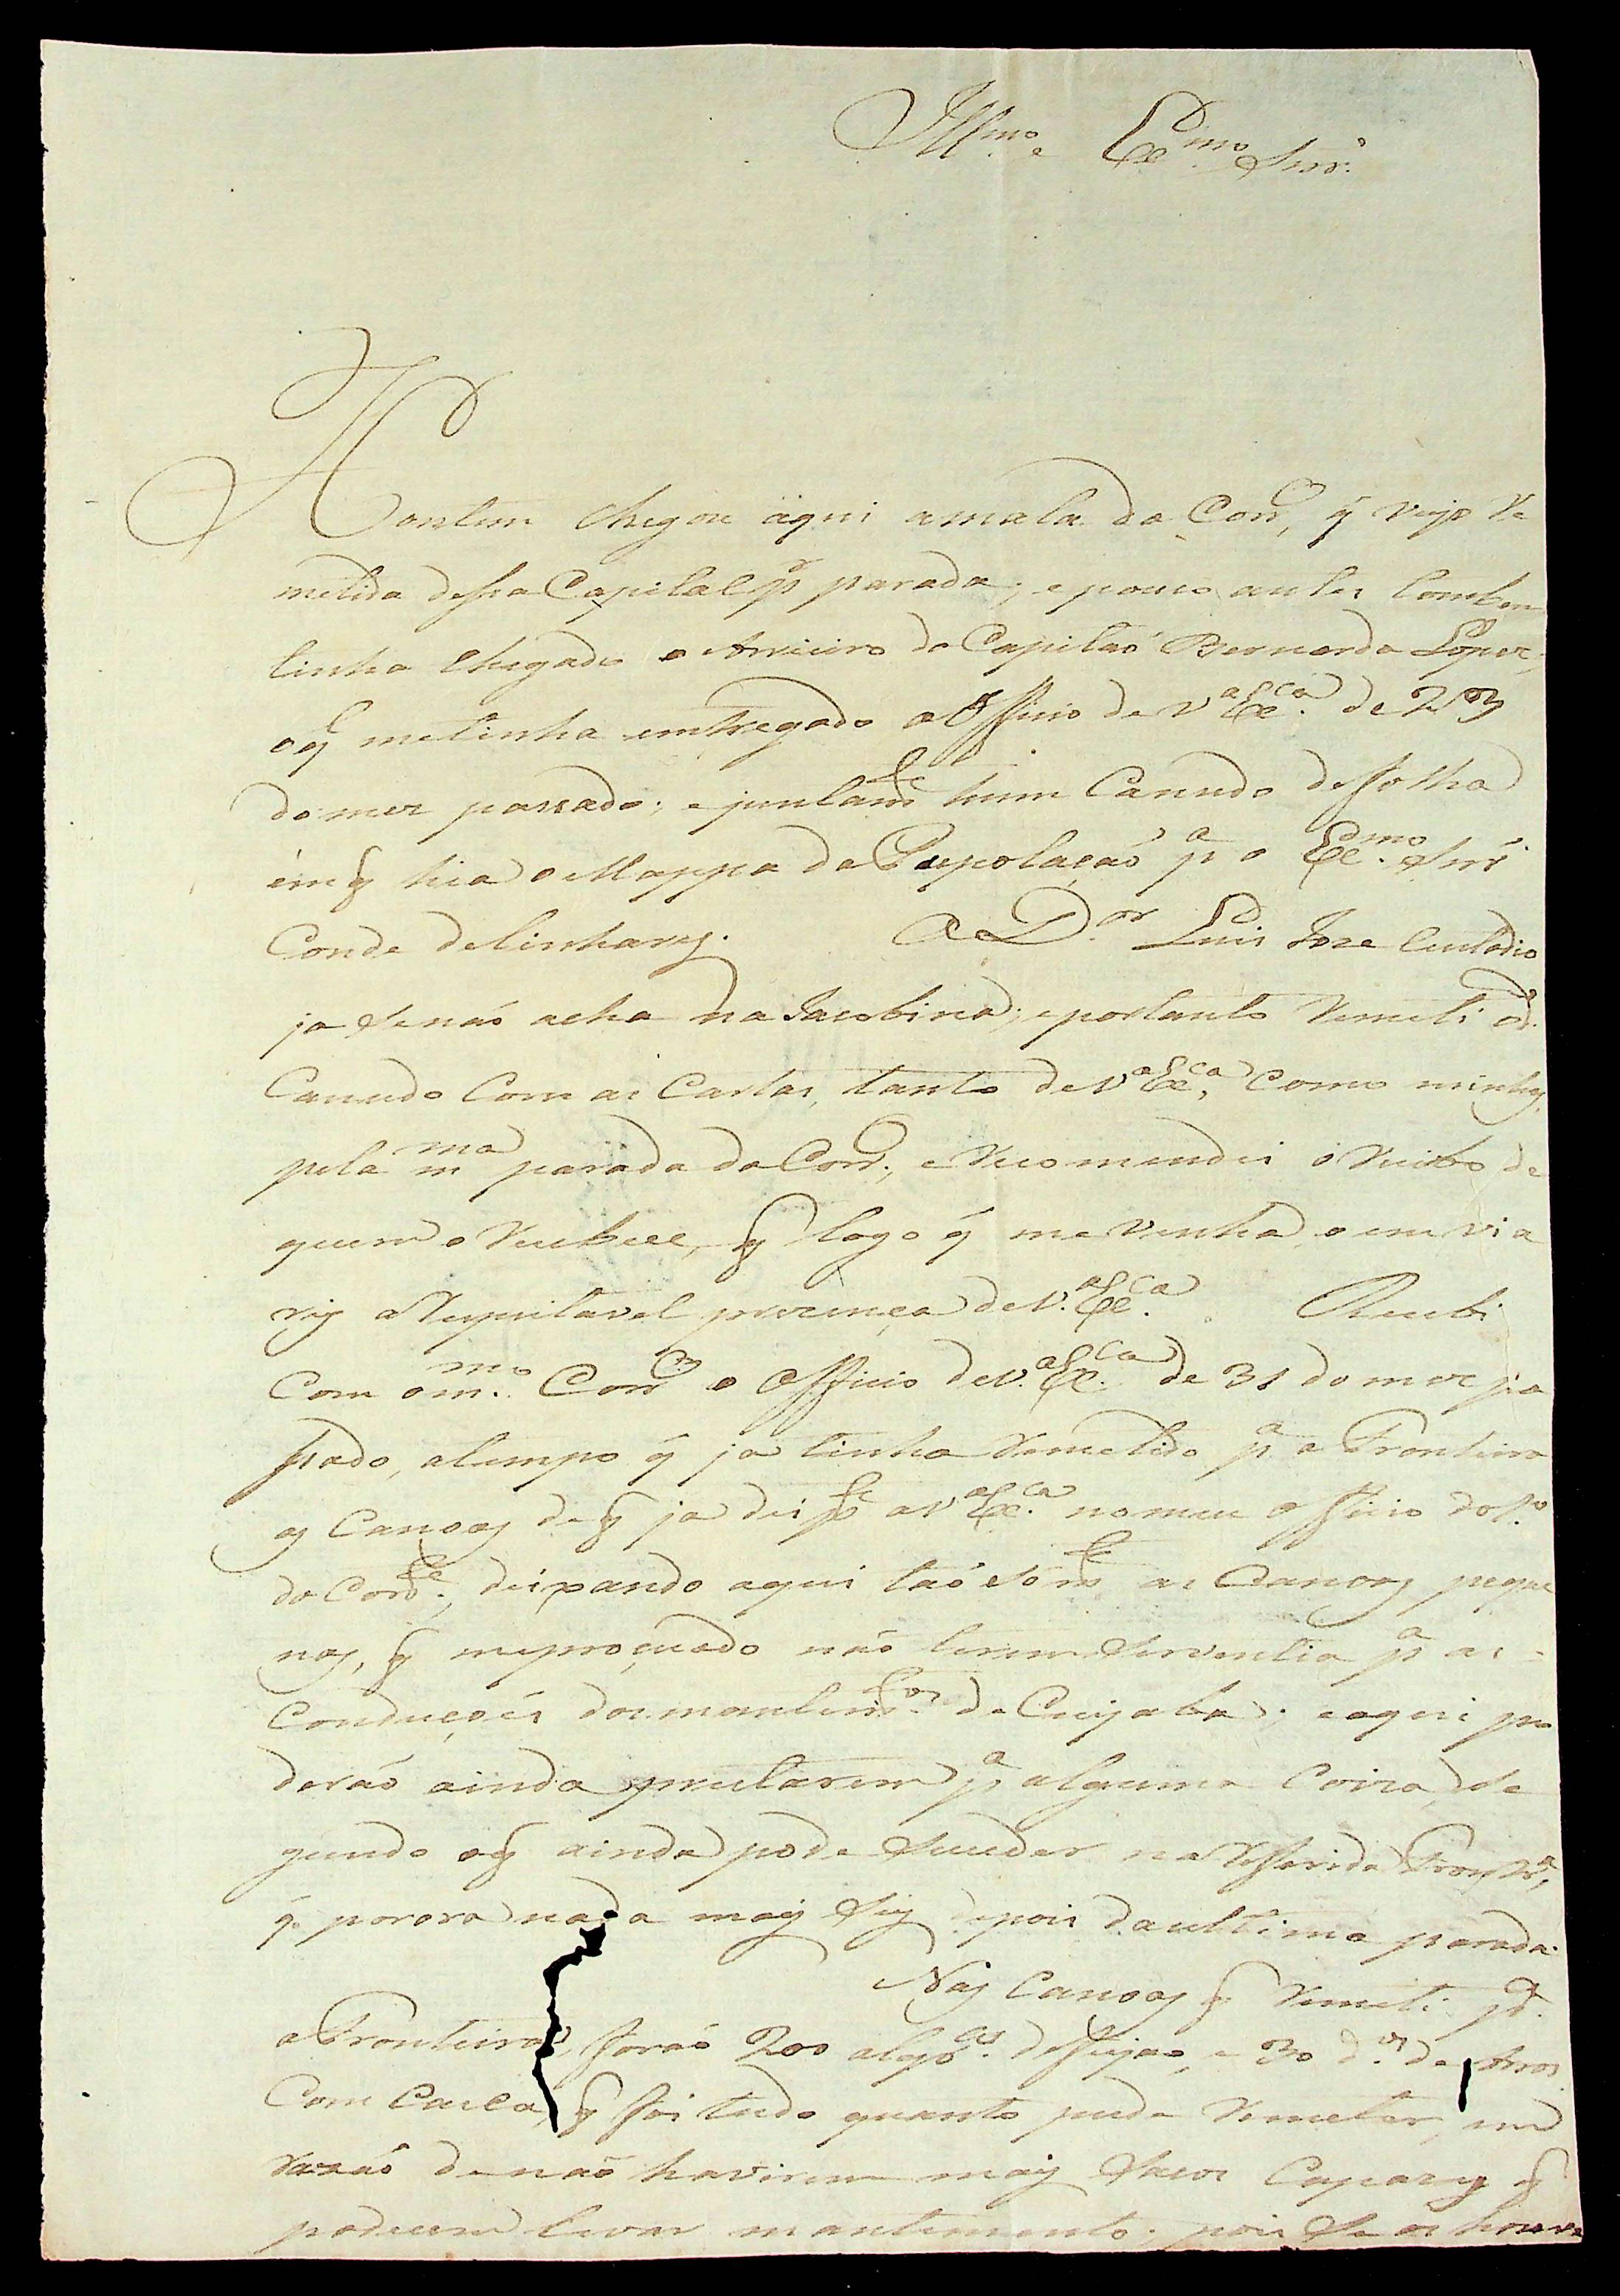 Ill.mo e Ex.mo Snr.
Hontem chegou aqui a mala do Corr.o, q̃ vejo Re
metida dessa Capital p.r parada; e pouco antes tombem
tinha chegado o Arrieiro do Capitaõ Bernardo Lopez,
oq̃ metinha emtregado o Officio de V.a Ex.ca de
do mez passado; e juntam.te hum Canudo de folha
em q̃ hia o Mappa da Pupolaçaõ p.a o Ex.mo Snr.
Conde de linhares. O D.or Luis Joze Custodio
ja senaõ acha na Jacobina; eportanto Remeti o d.o
Canudo Com as Cartas, tanto de V.a Ex.ca, Como minhas,
pela m.ma parada do Corr.o, e Recomendei o Recibo de
quem o Recebece, q̃ logo q̃ me venha, o emvia
rey a Respeitavel prezença de V.a Ex.ca. Recebi
Com o m.mo Corr.o o Officio de V.a Ex.ca de 31 do mez pa
ssado, atempo q̃ ja tinha Remetido p.a a Fronteira
as Canoas de q̃ ja dei p.te a V.a Ex.ca no meu officio do 1.o
do Corr.te, deixando aqui taõ som.te as Canoas peque
nas, q̃ meproçuado não terem serventia p.a as
Conduçoẽs dos mantim.tos de Cuyaba; e aqui po
deráo ainda prestarem p.a alguma Coiza, se
gundo oq̃ ainda pode suceder na Referida Front.ra,
q̃ porora nada mais sey depois da ultima parada.
Nas Canoas q̃ Remeti p.a
a Fronteira, foraõ 200 alq.es de feijaõ, e 30 d.os de Arros
Com Casca, q̃ foi tudo quanto pude Remeter, em
Razaõ de naõ haverem mais sacos Capazes q̃
podecem levar mantimento; pois se os houve